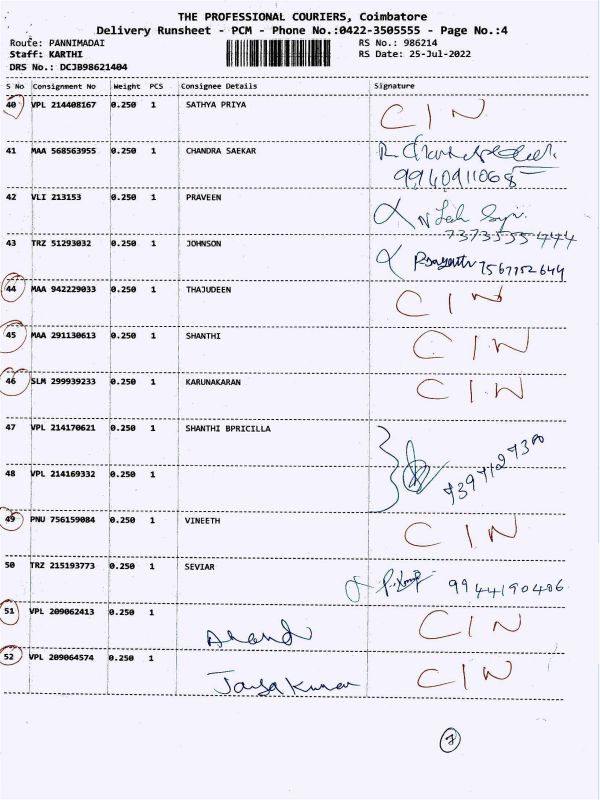 THE PROFESSIONAL COURIERS, Coimbatore
Delivery Runsheet - PCM - Phone No.:0422-3505555 - Page No.:4
Route: PANNIMADAI RS No.: 986214
Staff: KARTHI RS Date: 25-Jul-2022
DRS No.: DCJB98621404
S No Consignment No Weight PCS Consignee Details Signature
40 VPL 214408167 0.250 1 SATHYA PRIYA CIN
41 MAA 568563955 0.250 1 CHANDRA SAEKAR
9940911068
42 VLI 213153 0.250 1 PRAVEEN
7373555444
43 TRZ 51293032 0.250 1 JOHNSON 7567752644
44 MAA 942229033 0.250 1 THAJUDEEN CIN
45 MAA 291130613 0.250 1 SHANTHI CIN
46 SLM 299939233 0.250 1 KARUNAKARAN CIN
47 VPL 214170621 0.250 1 SHANTHI BPRICILLA
48 VPL 214169332 0.250 1
49 PNU 756159084 0.250 1 VINEETH CIN
50 TRZ 215193773 0.250 1 SEVIAR 9944190406
51 VPL 209062413 0.250 1 Anand CIN
52 VPL 209064574 0.250 1 Jayakumar CIN